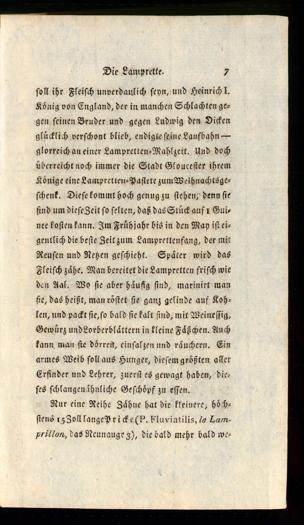 Die Lamprette. 7
soll ihr Fleisch unverdaulich seyn, und Heinrich I.
König von England, der in manchen Schlachten ge-
gen seinen Bruder und gegen Ludwig den Dicken
glücklich verschont blieb, endigte seine Laufbahn —
glorreich an einer Lampretten-Mahlzeit. Und doch
überreicht noch immer die Stadt Gloucester ihrem
Könige eine Lampretten-Pastete zum Weihnachtsge-
schenk. Diese kommt hoch genug zu stehen, denn sie
sind um diese Zeit so selten, daß das Stück auf 1 Gui-
nee kosten kann. Im Frühjahr bis in den May ist ei-
gentlich die beste Zeit zum Lamprettenfang, der mit
Reusen und Netzen geschieht. Später wird das
Fleisch zähe. Man bereitet die Lampretten frisch wie
den Aal. Wo sie aber häufig sind, marinirt man
sie, das heißt, man röstet sie ganz gelinde auf Koh-
len, und packt sie, so bald sie kalt sind, mit Weinessig,
Gewürz und Lorberblättern in kleine Fäßchen. Auch
kann man sie dörren, einsalzen und räuchern. Ein
armes Weib soll aus Hunger, diesem größten aller
Erfinder und Lehrer, zuerst es gewagt haben, die-
ses schlangenähnliche Geschöpf zu essen.
Nur eine Reihe Zähne hat die kleinere, höch-
stens 15 Zoll lange Pricke (P. Fluviatilis, la Lam-
prillon, das Neunauge 3), die bald mehr bald we-